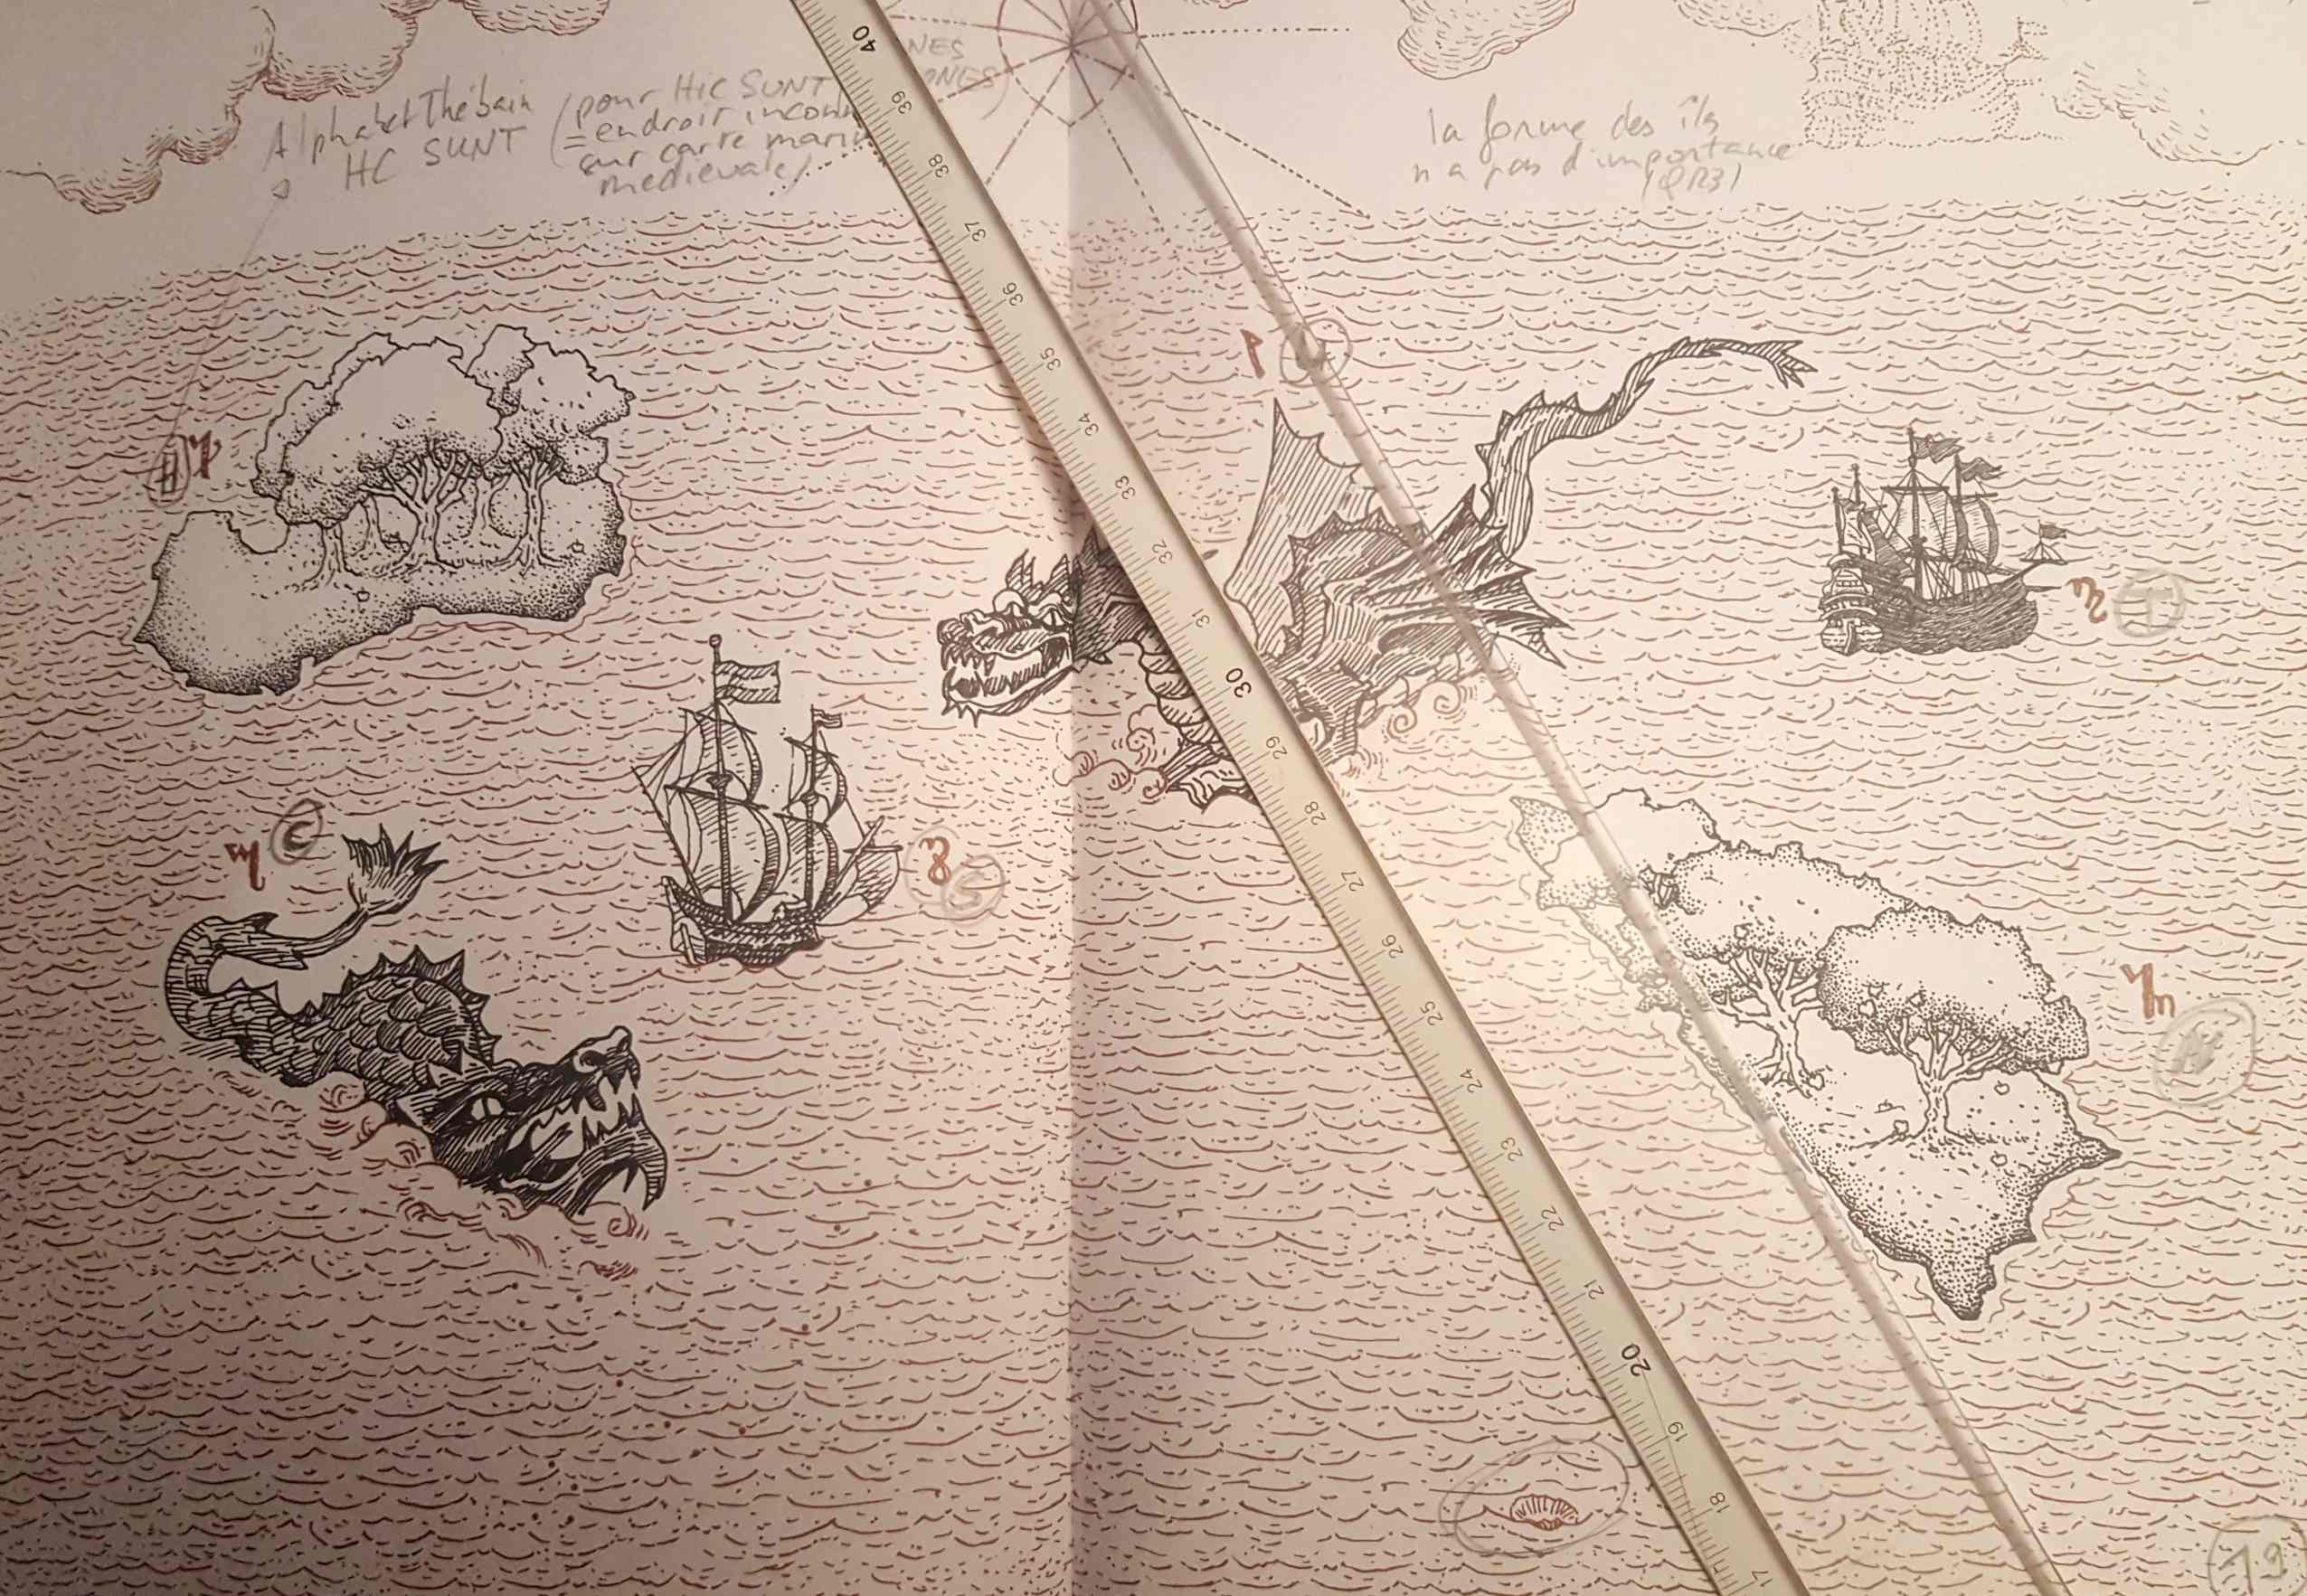 NES
ONES)
Alphabet Thébain (pour HiC SUNT
HC SUNT = endroit inconn
sur carte marin
médiévale)
la forme des îls
n a pas d'importance
(QR3)
H
T
C
S
N
40
39
38
37
36
35
34
33
32
31
30
29
28
27
26
25
24
23
22
21
20
19
18
17
19